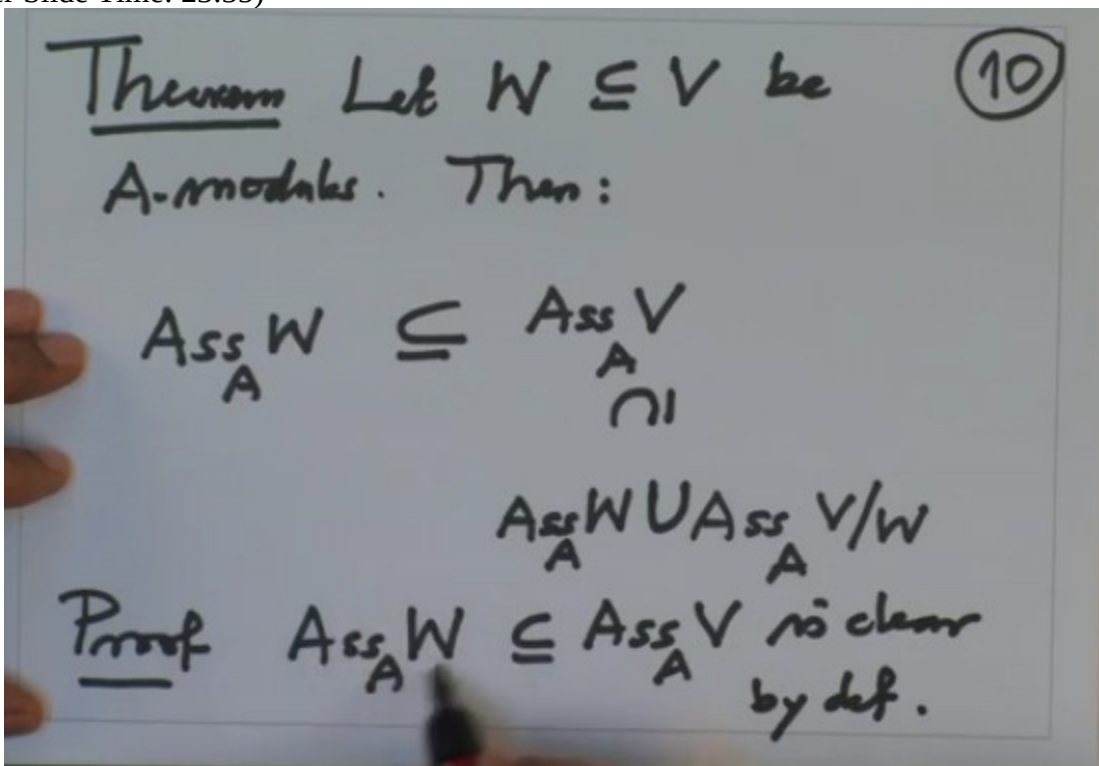 r Slide Time: 25:55)
Theorem Let W ⊆ V be
10
A-modules. Then:
Ass_A W ⊆ Ass_A V
∩|
Ass_A W ∪ Ass_A V/W
Proof Ass_A W ⊆ Ass_A V is clear
by def.